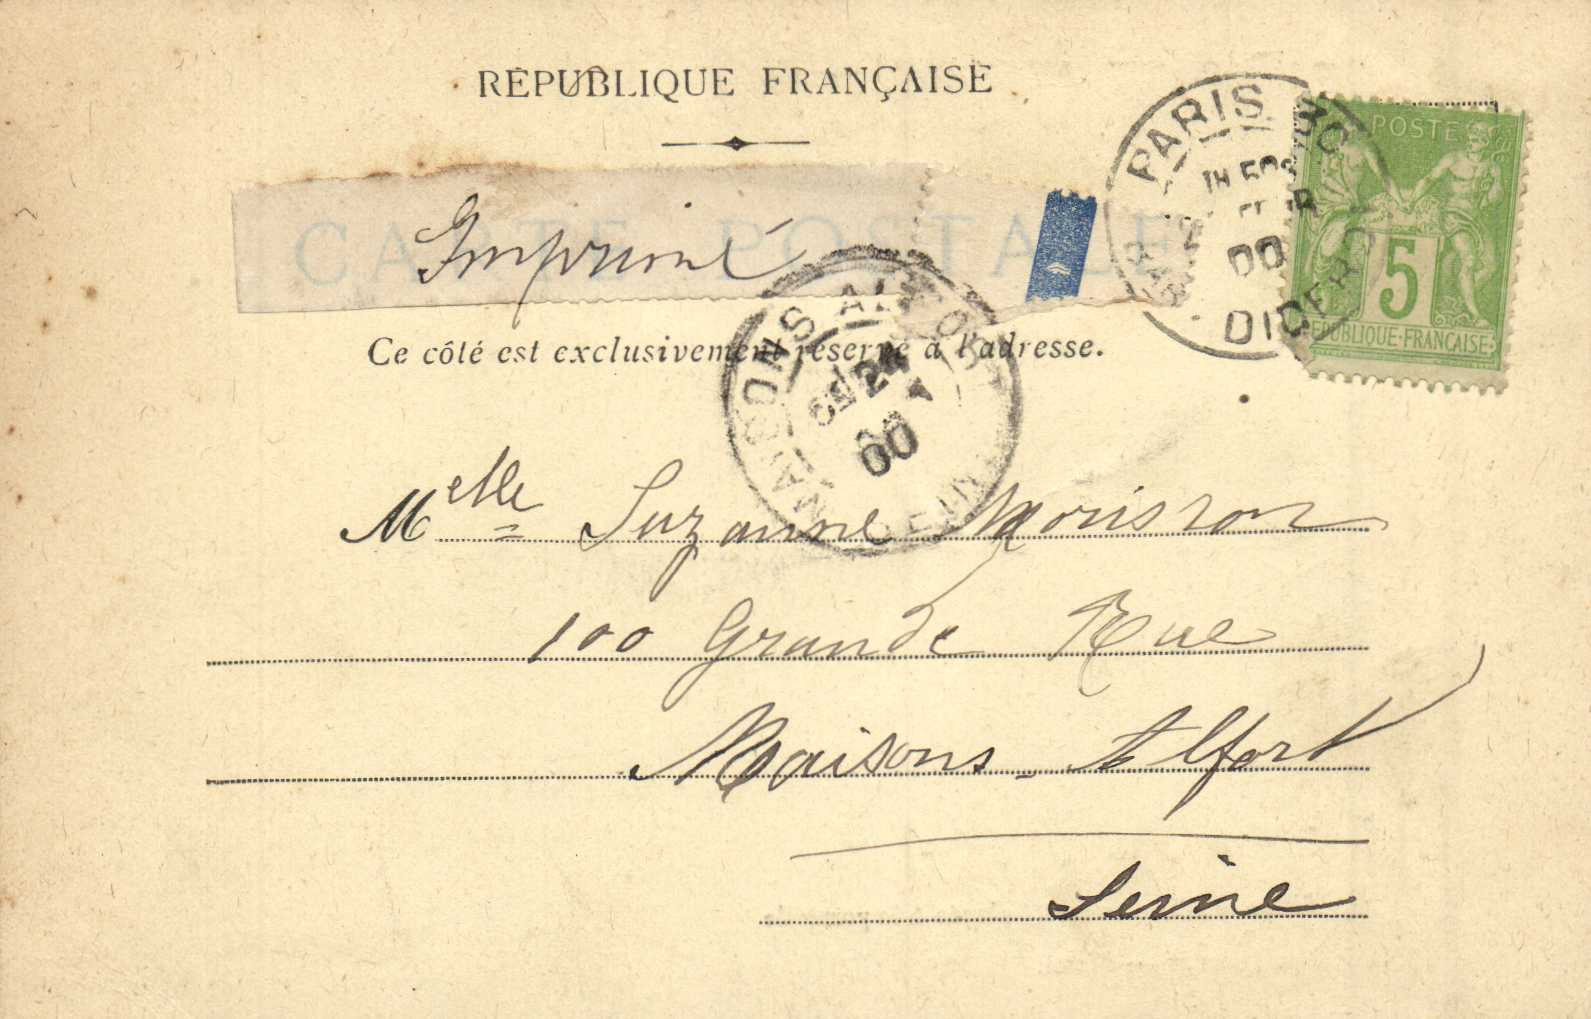 RÉPUBLIQUE FRANÇAISE
CARTE POSTALE
Imprimé
Ce côté est exclusivement réservé à l'adresse.
PARIS
00
DIDEROT
POSTE
5
REPUBLIQUE FRANÇAISE
MAISONS ALFORT
24
00
SEINE
Melle Suzanne Morisson
100 Grande Rue
Maisons-Alfort
Seine